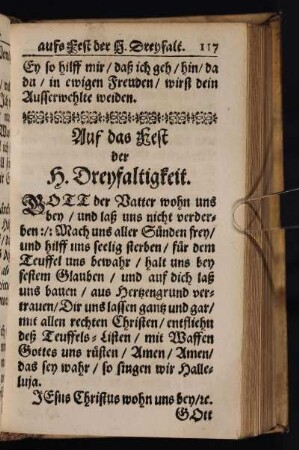 aufs Fest der H. Dreyfalt. 117
Ey so hilff mir / daß ich geh / hin / da
du / in ewigen Freuden / wirst dein
Ausserwehlte weiden.
Auf das Fest
der
H. Dreyfaltigkeit.
GOTT der Vatter wohn uns
bey / und laß uns nicht verder-
ben :/: Mach uns aller Sünden frey /
und hilff uns seelig sterben / für dem
Teuffel uns bewahr / halt uns bey
festem Glauben / und auf dich laß
uns bauen / aus Hertzengrund ver-
trauen / Dir uns lassen gantz und gar /
mit allen rechten Christen / entfliehn
deß Teuffels-Listen / mit Waffen
Gottes uns rüsten / Amen / Amen /
das sey wahr / so singen wir Halle-
luja.
JEsus Christus wohn uns bey / ꝛc.
GOtt